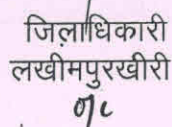 जिलाधिकारी
लखीमपुरखीरी
o/c